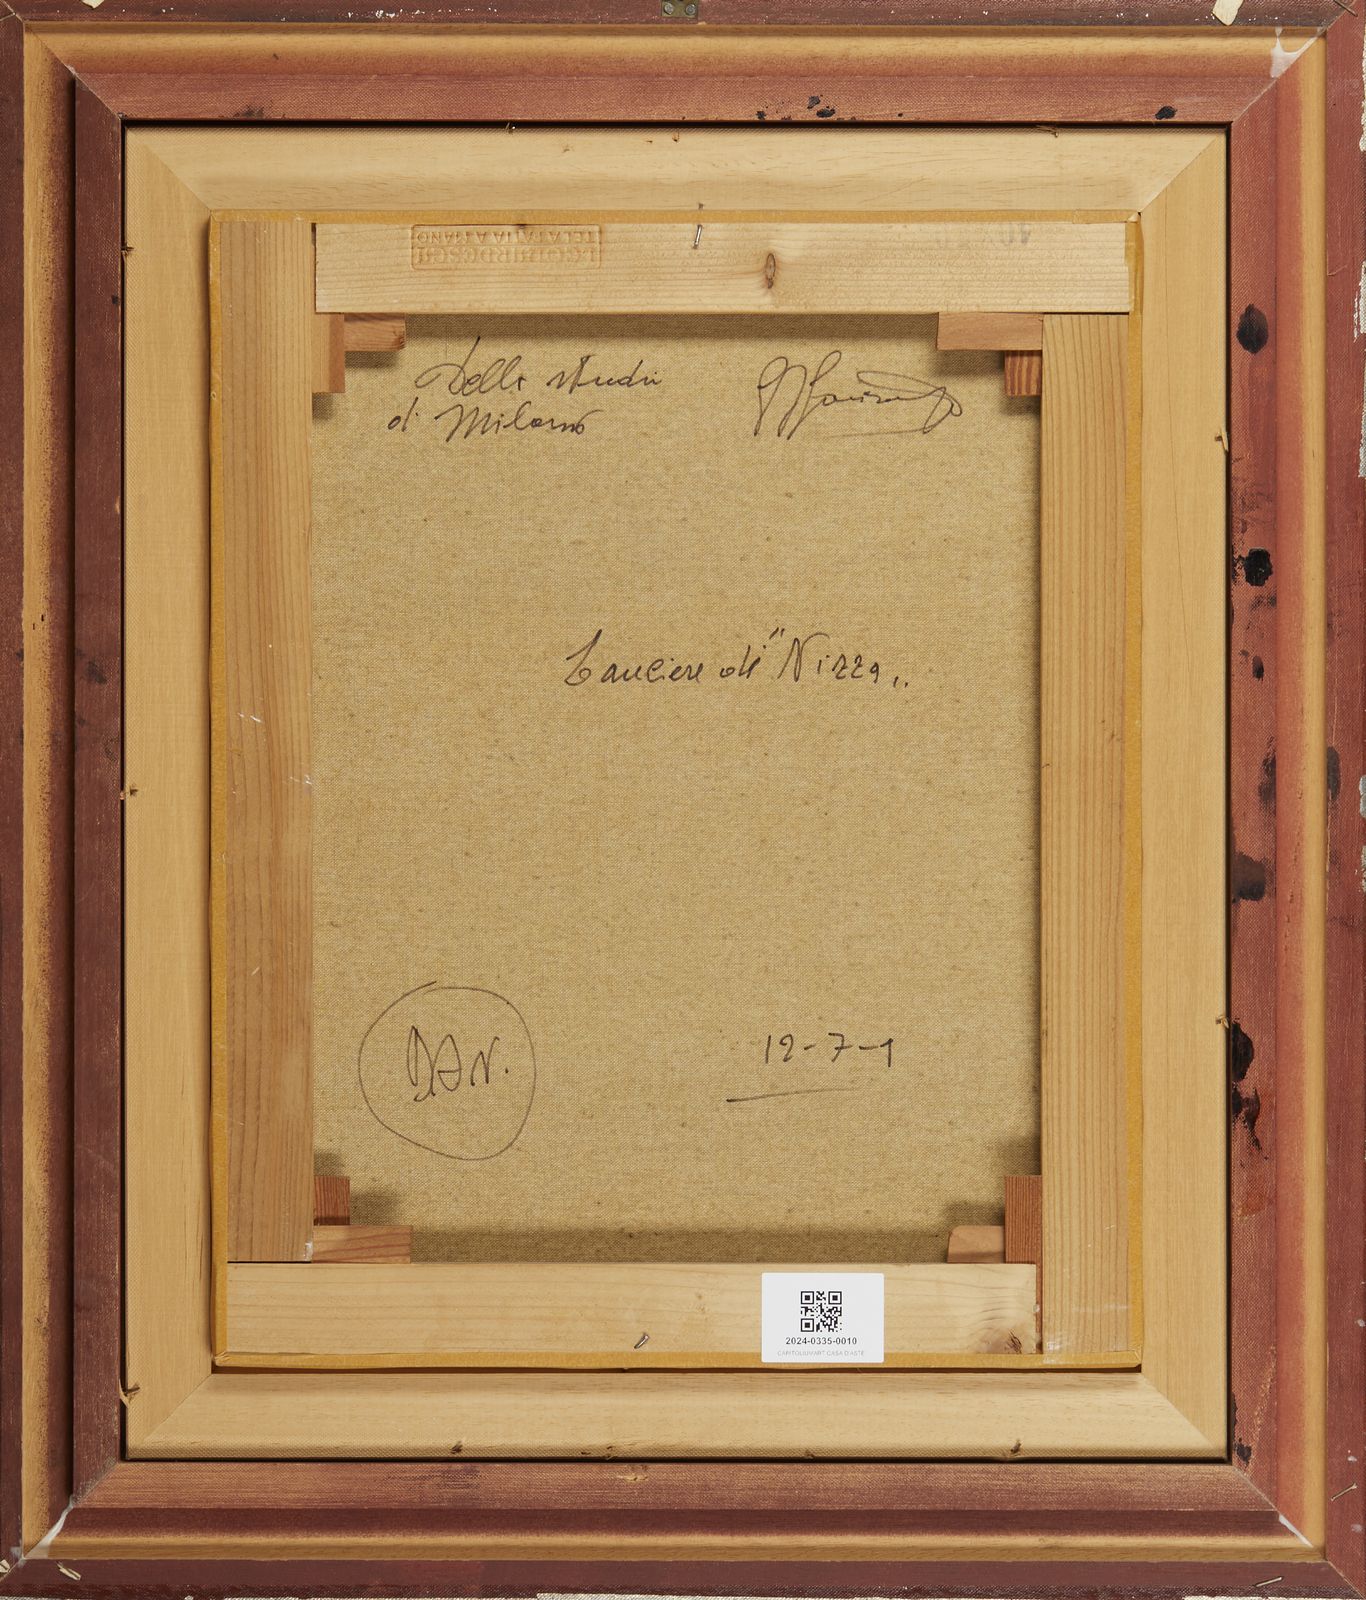 TELA FATTA A MANO
Dello studio
di Milano
Lanciere di "Nizza"
12-7-1
2024-0335-0010
CAPITOLIUMART CASA D'ASTE